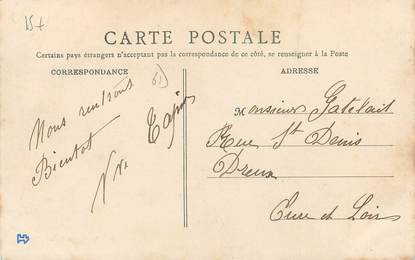 15+
CARTE POSTALE
Certains pays étrangers n'acceptant pas la correspondance de ce côté, se renseigner à la Poste
CORRESPONDANCE
ADRESSE
Nous rentrons
Bientot
Monsieur Gatelait
Rue St Denis
Dreux
Eure et Loir